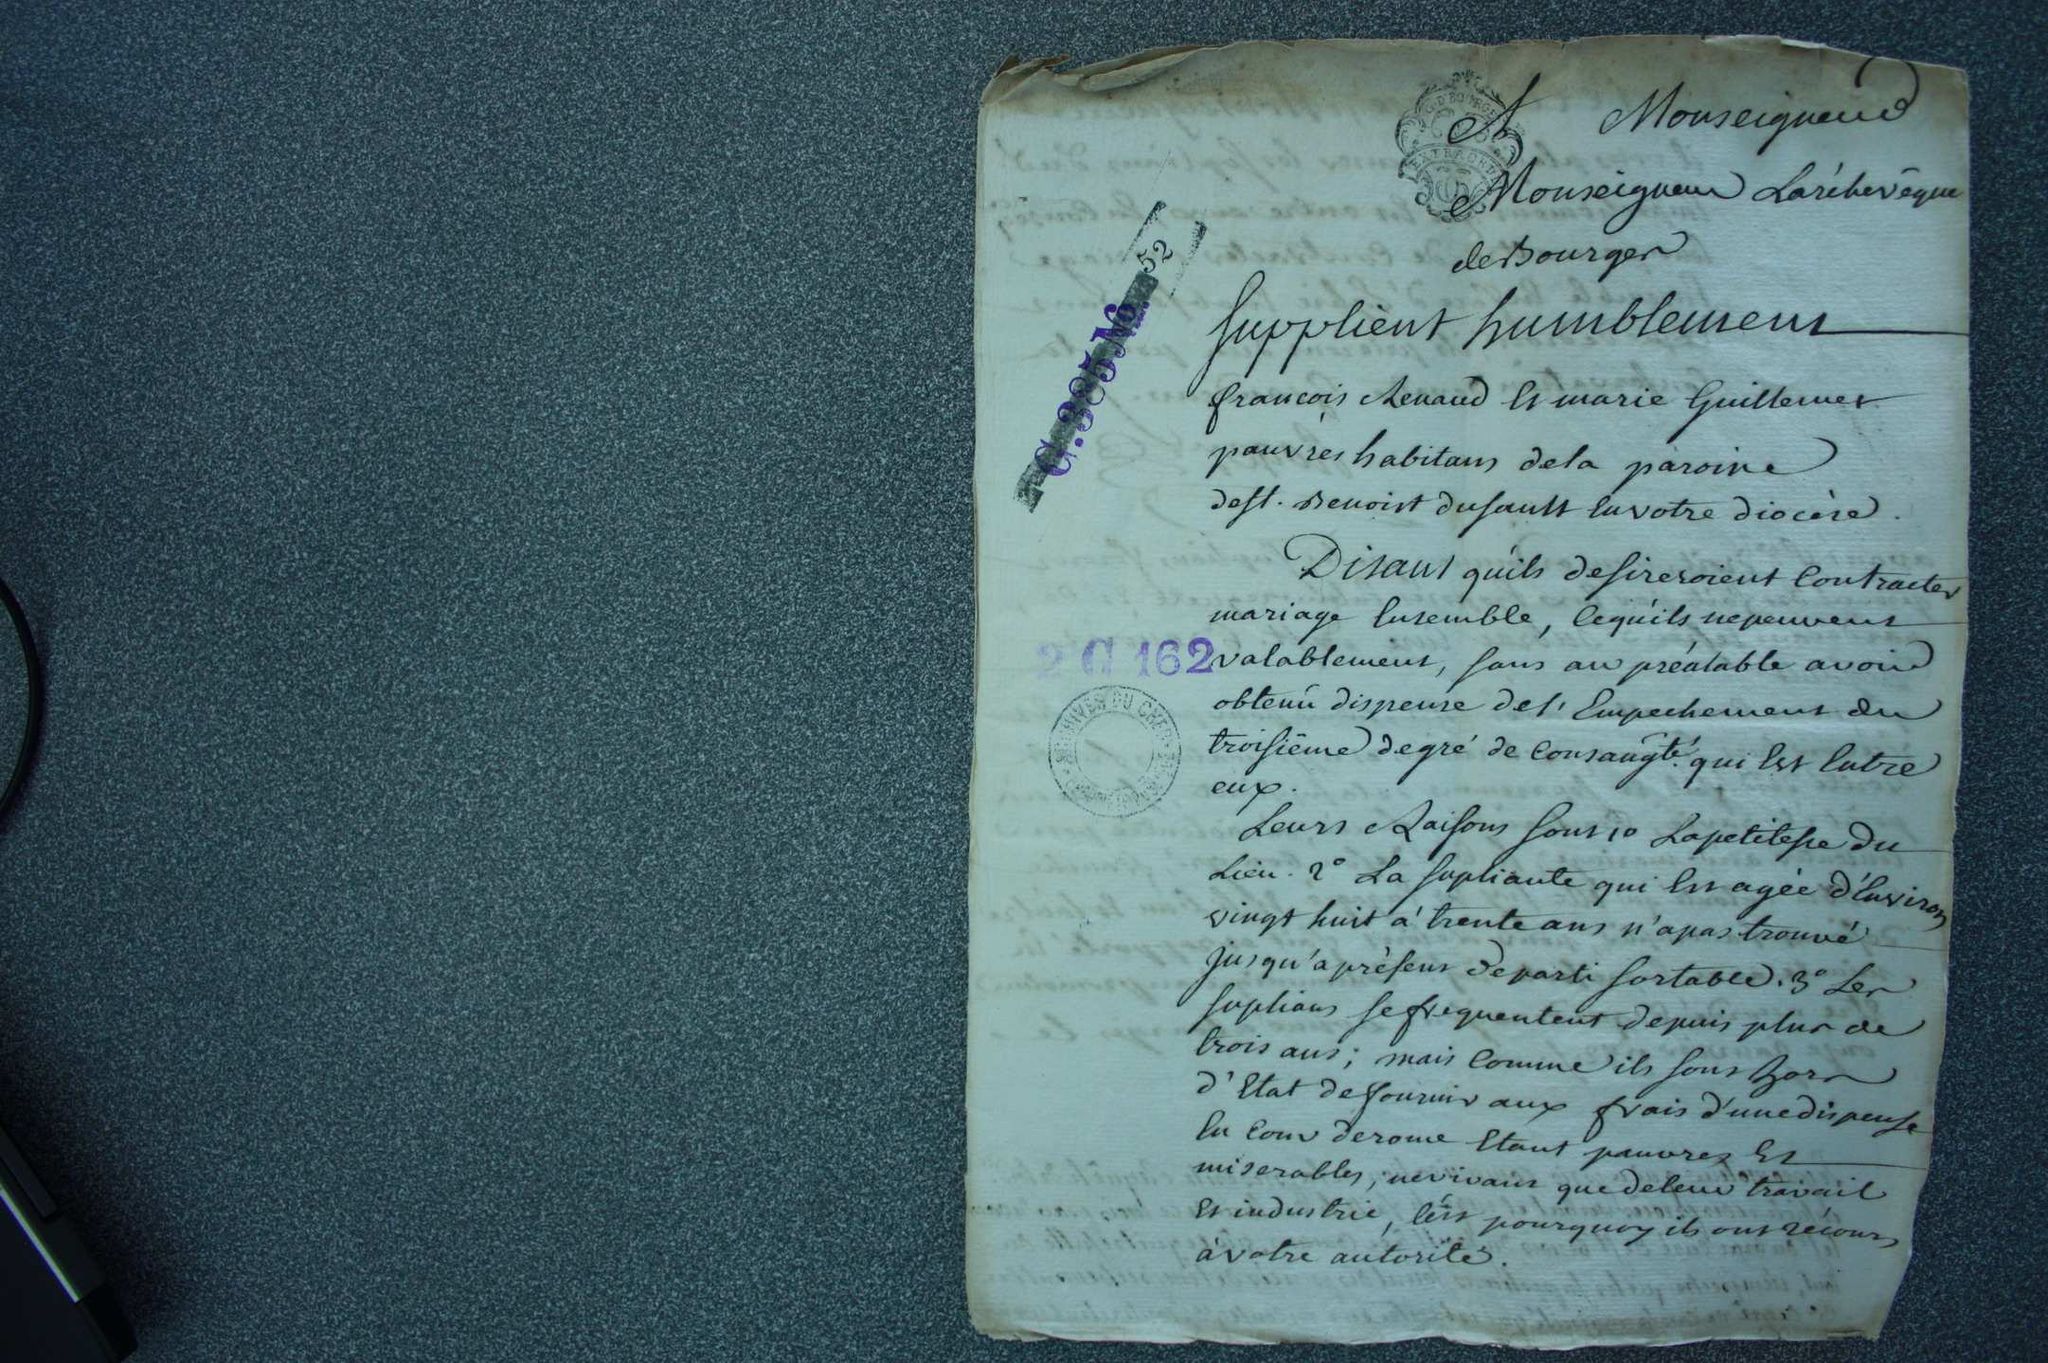 A Monseigneur
Monseigneur Larchevêque
de Bourges
Supplient humblement
françois Renaud Et marie Guillemet
pauvres habitans dela paroisse
de st. Benoist du sault En votre diocèse.
Disant qu'ils desireroient Contracter
mariage Ensemble, Cequ'ils nepeuvent
valablement, sans au préalable avoir
obtenû dispense de l'Empechement du
troisiême degré de Consangté. qui Est Entre
eux.
Leurs Raisons sont 1o Lapetitesse du
Lieu. 2o La supliante qui Est agée d'Environ
vingt huit à trente ans n'apas trouvé
jusqu'a présent departi sortable. 3o Les
suplians se frequentent depuis plus de
trois ans; mais Comme ils sont hors
d'Etat defournir aux frais d'unedispense
En Cour derome Etant pauvres Et
miserables, nevivans que deleur travail
Et industrie, C'est pourquoy ils ont récours
à votre autorité.
G. 385 No. 52
2 G 162
ARCHIVES DU CHER